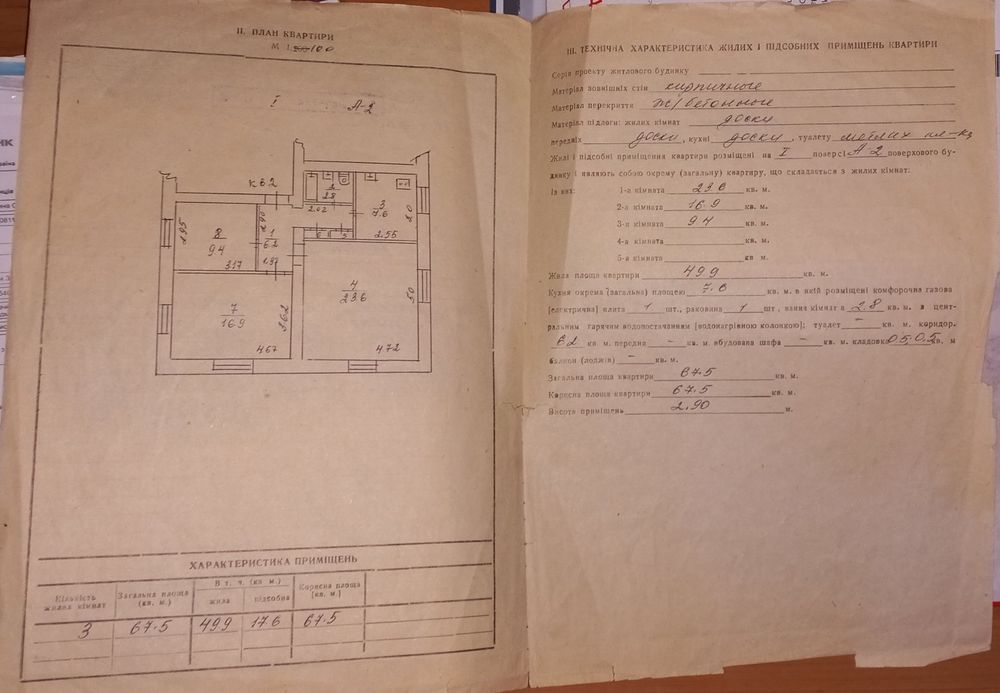 II. ПЛАН КВАРТИРИ
М 1:200 100
I А-2
кв 2
2
2.8
3
7.6
2.02
2.90
2.95
8
9.4
1
6.2
6
5
2.55
3.17
1.97
4
23.6
7
16.9
3.62
4.67
4.72
ХАРАКТЕРИСТИКА ПРИМІЩЕНЬ
Кількість жилих кімнат
Загальна площа (кв. м.)
В т. ч. (кв м.)
жила
підсобна
Корисна площа [кв. м.]
3 67.5 49.9 17.6 67.5
III. ТЕХНІЧНА ХАРАКТЕРИСТИКА ЖИЛИХ І ПІДСОБНИХ ПРИМІЩЕНЬ КВАРТИРИ
Серія проекту житлового будинку
Матеріал зовнішніх стін кирпичные
Матеріал перекриття ж/бетонные
Матеріал підлоги: жилих кімнат доски
передніх доски, кухні доски, туалету метлах пл-ка
Жилі і підсобні приміщення квартири розміщені на I поверсі А 2 поверхового бу-
динку і являють собою окрему (загальну) квартиру, що складається з жилих кімнат:
Із них: 1-а кімната 23.6 кв. м.
2-а кімната 16.9 кв. м.
3-я кімната 9.4 кв. м.
4-а кімната кв. м.
5-а кімната кв. м.
Жила площа квартири 49.9 кв. м.
Кухня окрема (загальна) площею 7.6 кв. м. в якій розміщені комфорочна газова
[електрична] плита 1 шт., раковина 1 шт, ванна кімната 2.8 кв. м. а центр-
ральним гарячим водопостачанням [водонагрівною колонкою]; туалет – кв. м. коридор.
6.2 кв. м. передня – кв. м. вбудована шафа – кв. м. кладовка 0.5; 0.5 кв. м
балкон (лоджія) – кв. м.
Загальна площа квартири 67.5 кв. м.
Корисна площа квартири 67.5 кв. м.
Висота приміщень 2.90 м.